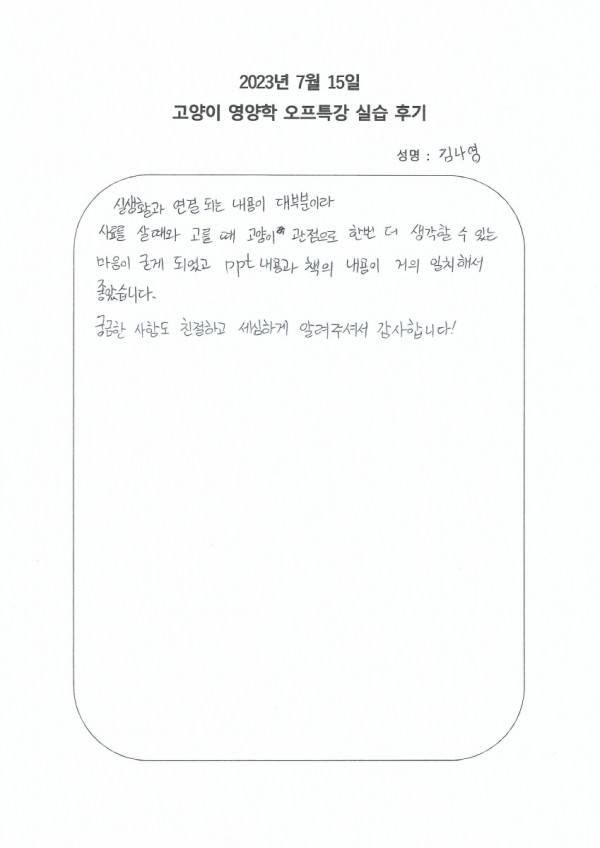 2023년 7월 15일
고양이 영양학 오프특강 실습 후기
성명 : 김나영
실생활과 연결 되는 내용이 대부분이라
사료를 살때와 고를 때 고양이 관점으로 한번 더 생각할 수 있는
마음이 굳게 되었고 ppt 내용과 책의 내용이 거의 일치해서
좋았습니다.
궁금한 사항도 친절하고 세심하게 알려주셔서 감사합니다!